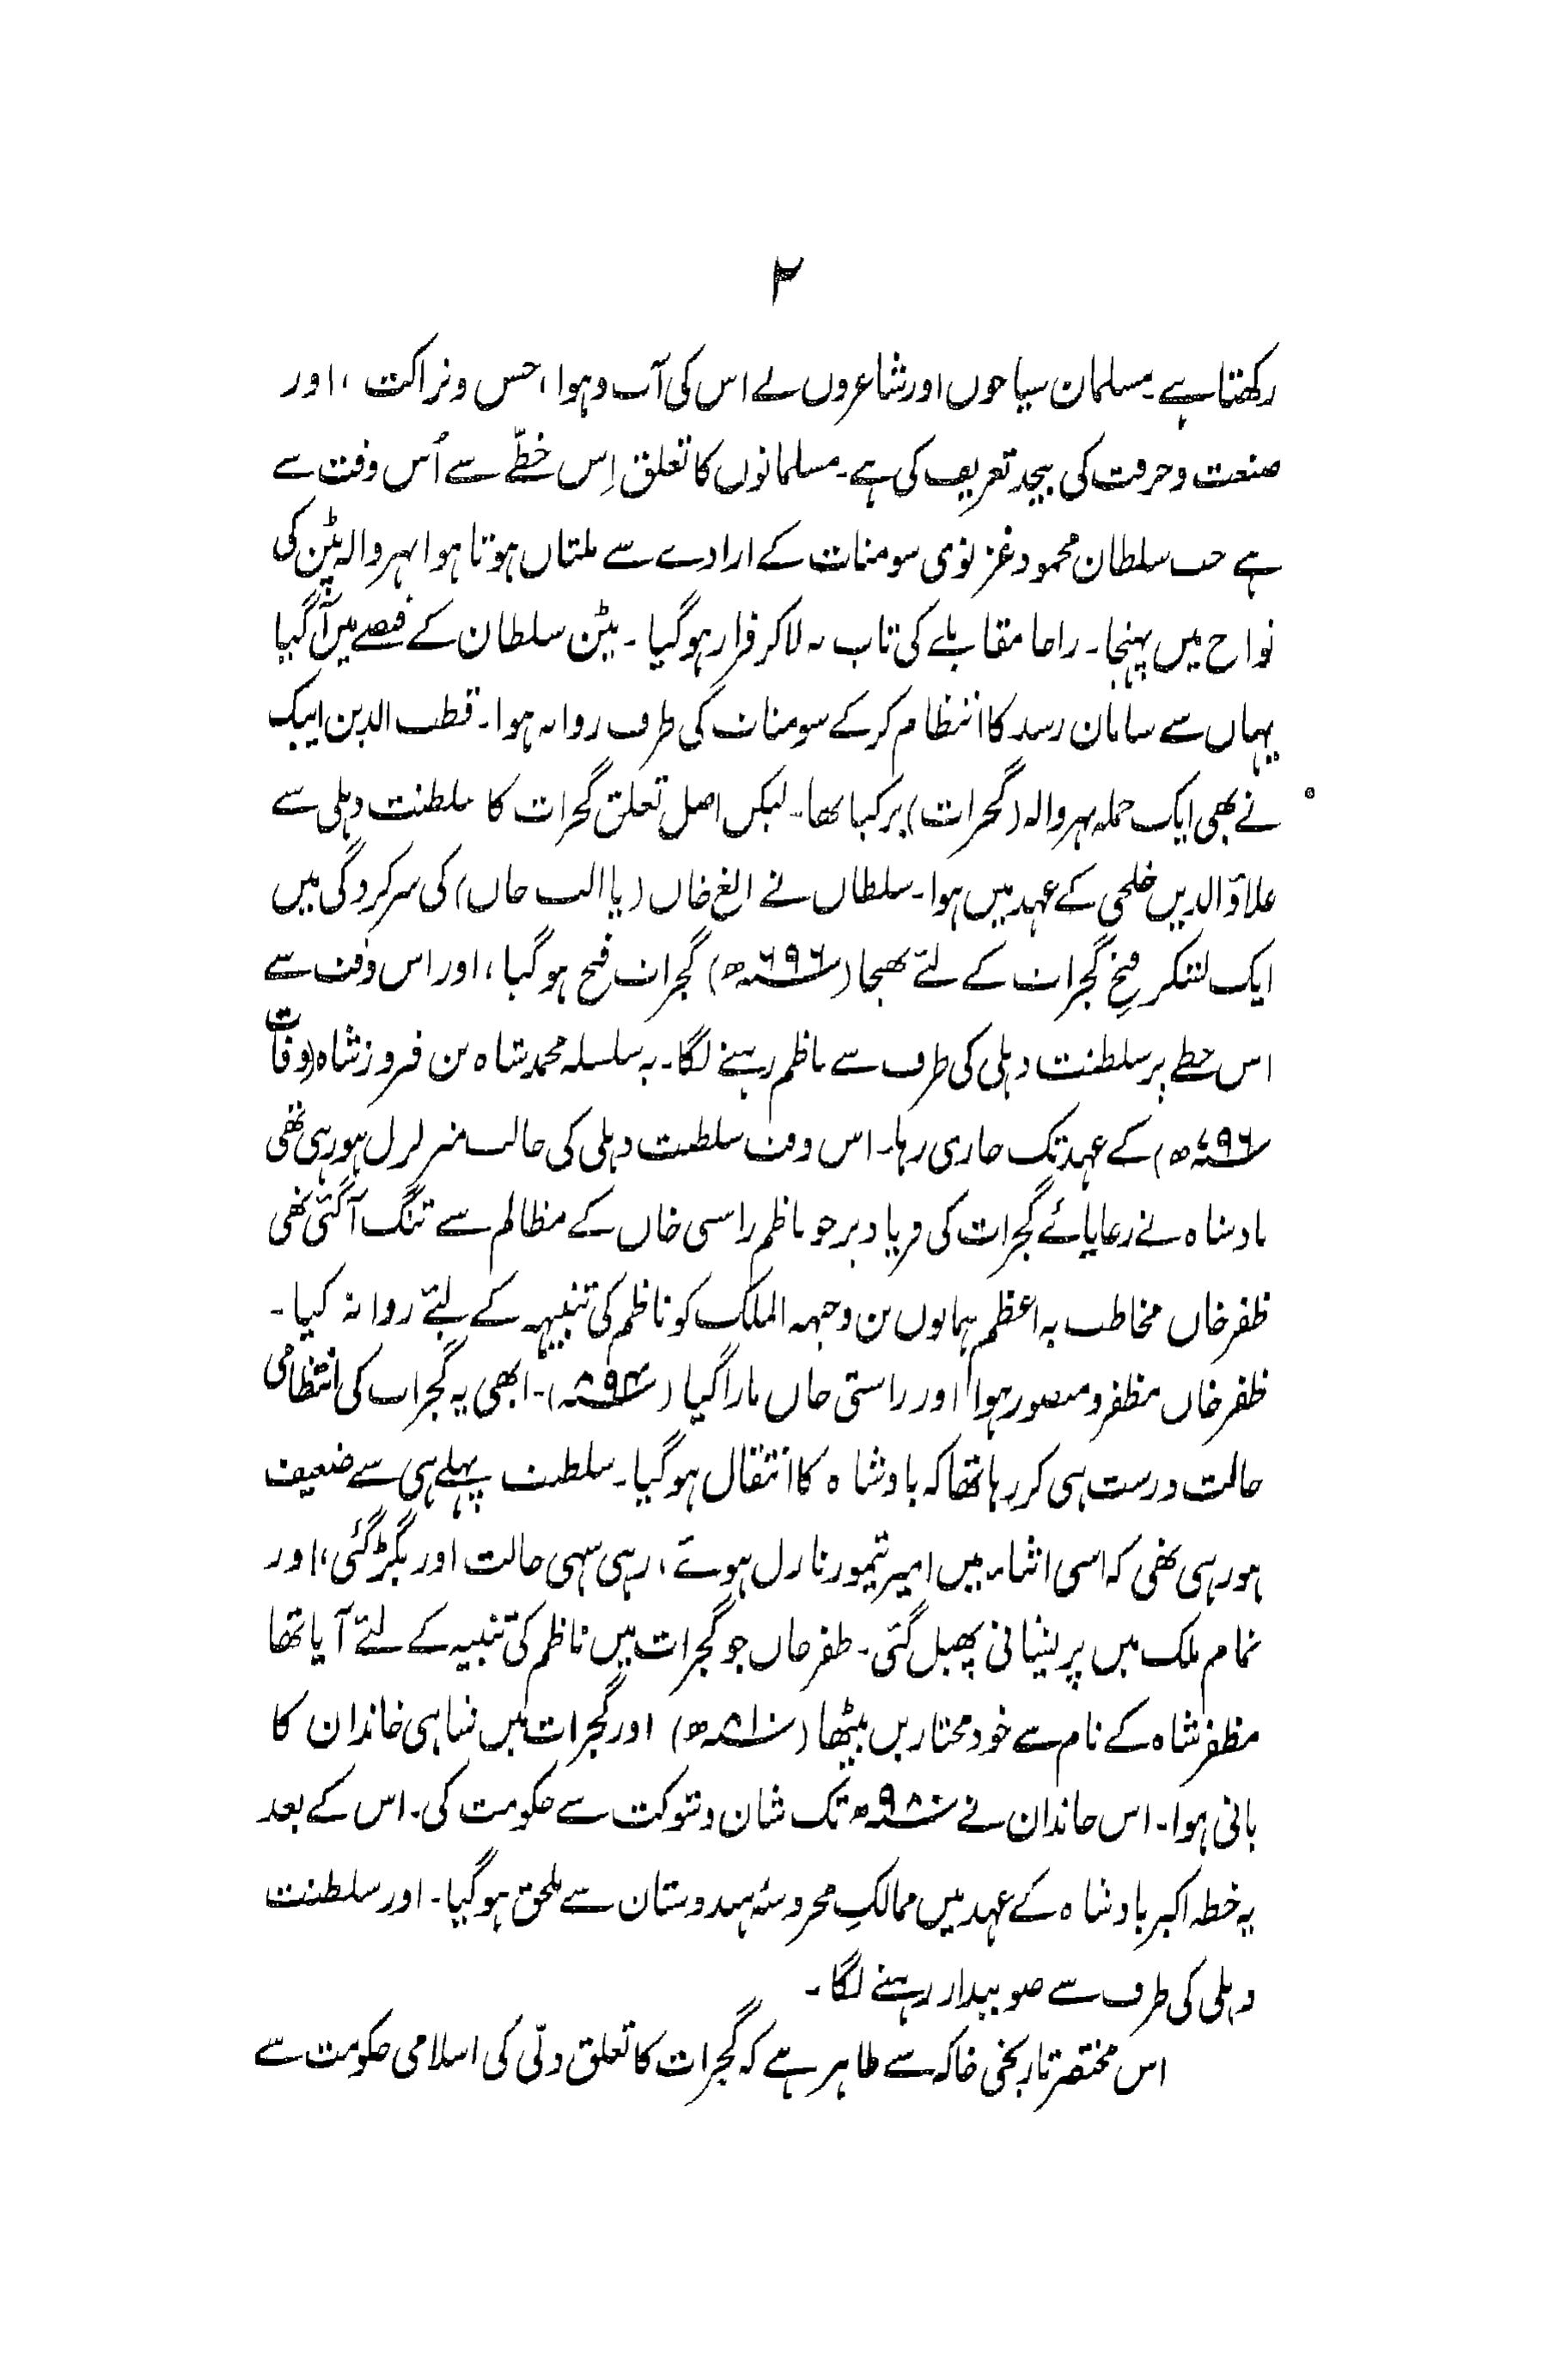 ۲
رکھتا ہے۔ مسلمان سیاحوں اور شاعروں نے اس کی آب و ہوا، حسن و نزاکت، اور
صنعت و حرفت کی بیحد تعریف کی ہے۔ مسلمانوں کا تعلق اِس خطّے سے اُس وقت سے
ہے جب سلطان محمود غزنوی سومنات کے ارادے سے ملتان ہوتا ہوا نہروالہ پٹن کی
نواح میں پہنچا۔ راجا مقابلے کی تاب نہ لا کر فرار ہوگیا۔ پٹن سلطان کے قبضے میں آگیا
یہاں سے سامان رسد کا انتظام کرکے سومنات کی طرف روانہ ہوا۔ قطب الدین ایبک
نے بھی ایک حملہ نہروالہ (گجرات) پر کیا تھا۔ لیکن اصل تعلق گجرات کا سلطنت دہلی سے
علاؤالدین خلجی کے عہد میں ہوا۔ سلطان نے الغ خاں (یا الپ خاں) کی سرکردگی میں
ایک لشکر فتح گجرات کے لئے بھیجا (۶۹۶ھ) گجرات فتح ہوگیا، اور اس وقت سے
اس خطے پر سلطنت دہلی کی طرف سے ناظم رہنے لگا۔ یہ سلسلہ محمد شاہ بن فیروز شاہ (وفات
۷۹۶ھ) کے عہد تک جاری رہا۔ اس وقت سلطنت دہلی کی حالت متزلزل ہو رہی تھی
بادشاہ نے رعایائے گجرات کی فریاد پر جو ناظم راستی خاں کے مظالم سے تنگ آگئی تھی
ظفر خاں مخاطب بہ اعظم ہمایوں بن وجیہہ الملک کو ناظم کی تنبیہہ کے لئے روانہ کیا۔
ظفر خاں مظفر و منصور ہوا اور راستی خاں مارا گیا (۔ ابھی یہ گجرات کی انتظامی
حالت درست ہی کر رہا تھا کہ بادشاہ کا انتقال ہوگیا۔ سلطنت پہلے ہی سے ضعیف
ہو رہی تھی کہ اسی اثناء میں امیر تیمور نازل ہوئے، رہی سہی حالت اور بگڑ گئی، اور
تمام ملک میں پریشانی پھیل گئی۔ ظفر خاں جو گجرات میں ناظم کی تنبیہ کے لئے آیا تھا
مظفر شاہ کے نام سے خود مختار بن بیٹھا (۸۱۰ھ) اور گجرات میں شاہی خاندان کا
بانی ہوا۔ اس خاندان نے ۹۸۰ھ تک شان و شوکت سے حکومت کی۔ اس کے بعد
یہ خطہ اکبر بادشاہ کے عہد میں ممالکِ محروسۂ ہندوستان سے ملحق ہوگیا۔ اور سلطنت
دہلی کی طرف سے صوبیدار رہنے لگا۔
اس مختصر تاریخی خاکہ سے ظاہر ہے کہ گجرات کا تعلق دلّی کی اسلامی حکومت سے